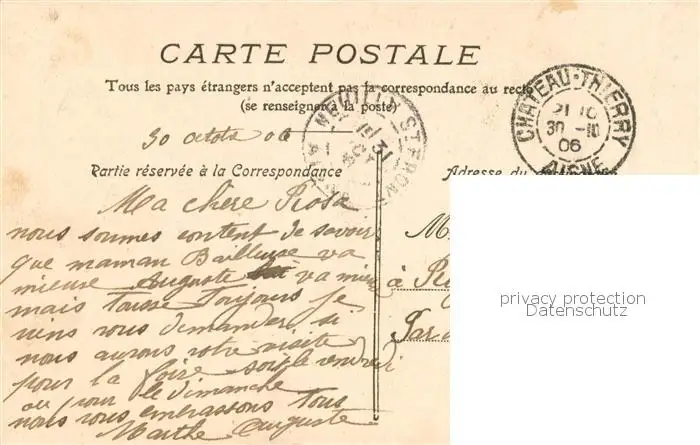 CARTE POSTALE
Tous les pays étrangers n'acceptent pas la correspondance au recto
(se renseigner à la poste)
CHATEAU-THIERRY
30 -10
06
AISNE
NEUILLY ST FRONT
30 octob 06
Partie réservée à la Correspondance
Adresse du
Ma chère Rosa
nous sommes content de savoir
que maman Bailleuse va
mieuse Auguste va mieu
mais tousse toujours je
viens vous demander si
nous aurons votre visite
pour la foire soit le vendredi
ou pour le dimanche
nous vous embrassons tous
Marthe Auguste
M
à
Par
privacy protection
Datenschutz